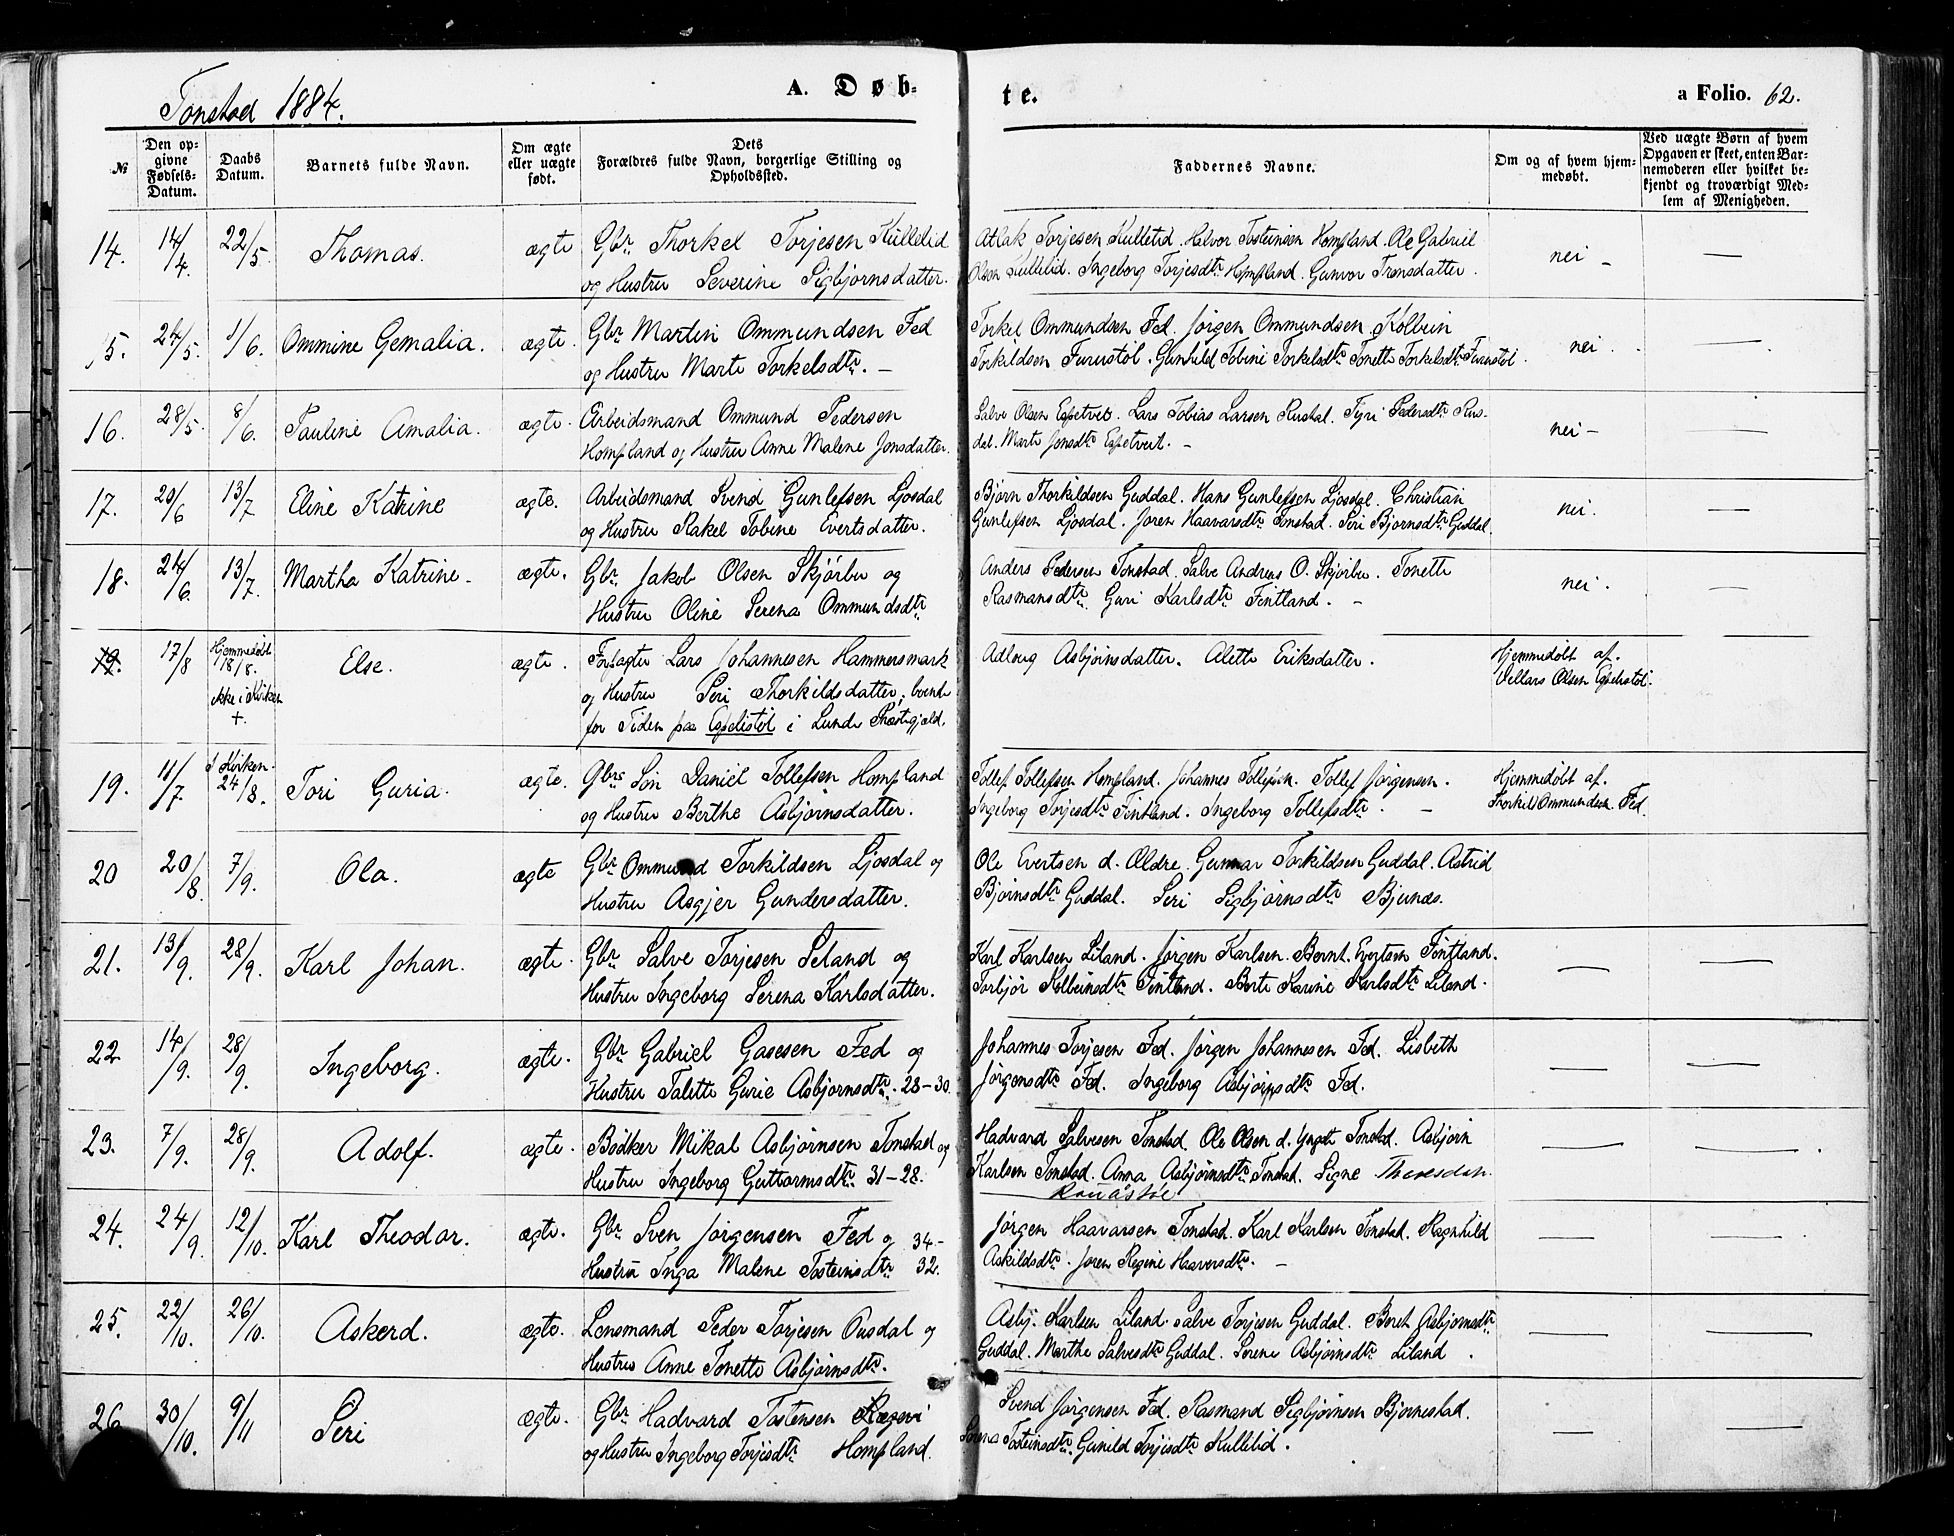 Tonstad 1884.
A. Døb-
te.
a Folio. 62.
№
Den op-
givne
Fødsels-
Datum.
Daabs
Datum.
Barnets fulde Navn.
Om ægte
eller uægte
født.
Dets
Forældres fulde Navn, borgerlige Stilling og
Opholdssted.
Faddernes Navne.
Om og af hvem hjem-
medøbt.
Ved uægte Børn af hvem
Opgaven er skeet, enten Bar-
nemoderen eller hvilket be-
kjendt og troværdigt Med-
lem af Menigheden.
14. 14/4. 22/5. Thomas. ægte Gbr. Thorkel Torjesen Kullelid
og Hustru Severine Sigbjørnsdatter.
Atlak Torjesen Kullelid. Halvor Tosteinsen Hompland. Ole Gabriel
Olsen Kullelid. Ingeborg Torjesdtr Hompland. Gunvor Trondsdatter.
nei - —
15. 24/5. 1/6. Ommine Gemalia. ægte. Gbr. Martin Ommundsen Fed
og Hustru Marte Torkelsdtr. —
Torkel Ommundsen Fed. Jørgen Ommundsen. Kolbein
Torkildsen Furustøl. Gunhild Tobine Torkelsdtr Tonette Torkelsdtr Furustøl.
nei. —
16. 28/5. 8/6. Pauline Amalia. ægte. Arbeidsmand Ommund Pedersen
Hompland og Hustru Anne Malene Jonsdatter.
Salve Olsen Espetveit. Lars Tobias Larsen Rusdal. Tyri Pedersdtr Rus-
dal. Marte Jonsdtr Espetveit. —
nei — —
17. 20/6 13/7 Eline Katrine ægte. Arbeidsmand Svend Gunlefsen Ljosdal
og Hustru Rakel Tobine Evertsdatter.
Bjørn Thorkildsen Guddal. Hans Gunlefsen Ljosdal. Christian
Gunlefsen Ljosdal. Joren Haavarsdtr Tonstad. Seri Bjørnsdtr Guddal.
nei. —
18. 24/6. 13/7. Martha Katrine. ægte. Gbr. Jakob Olsen Skjørbu og
Hustru Oline Serena Ommundsdtr
Anders Pedersen Tonstad. Salve Andreas O. Skjørbu. Tonette
Rasmansdtr. Guri Karlsdtr Fintland. —
nei. —
19. 17/8 Hjemmedøbt
18/8.
ikke i Kirken
+.
Else. ægte. Forpagter Lars Johannesen Hammersmark
og Hustru Seri Thorkildsdatter, boende
for Tiden paa Espelistøl i Lunde Præstegjæld.
Adlaug Asbjørnsdatter. Alette Eriksdatter.
Hjemmedøbt af.
Vellars Olsen Espelistøl.
19. 11/7. I Kirken.
24/8. Tori Guria. ægte. Gbrs Søn Daniel Tollefsen Hompland
og Hustru Berthe Asbjørnsdatter.
Tollef Tollefsen Hompland. Johannes Tollefsen. Tollef Jørgensen.
Ingeborg Torjesdtr Fintland. Ingeborg Tollefsdtr. —
Hjemmedøbt af.
Thorkild Ommundsen Fed.
20 20/8. 7/9. Ola. ægte Gbr. Ommund Torkildsen Ljosdal og
Hustru Asgjer Gundersdatter.
Ole Evertsen d. Ældre. Gunnar Torkildsen Guddal. Astrid
Bjørnsdtr Guddal. Seri Sigbjørnsdtr Bjunes.
21. 13/9. 28/9. Karl Johan. ægte. Gbr. Salve Torjesen Seland og
Hustru Ingeborg Serena Karlsdatter.
Karl Karlsen Liland. Jørgen Karlsen. Bernt Evertsen Fintland.
Torbjør Kolbeinsdtr Fintland. Berte Karine Karlsdtr Liland.
— —
22 14/9. 28/9. Ingeborg. ægte. Gbr. Gabriel Gasesen Fed og
Hustru Talette Gurie Asbjørnsdtr. 28-30.
Johannes Torjesen Fed. Jørgen Johannesen Fed. Lisbeth
Jørgensdtr Fed. Ingeborg Asbjørnsdtr Fed.
— —
23. 7/9. 28/9. Adolf. ægte. Bødker Mikal Asbjørnsen Tonstad og
Hustru Ingeborg Guttormsdtr. 31-28.
Hadvard Salvesen Tonstad. Ole Olsen d. yngste Tonstad. Asbjørn
Karlsen Tonstad. Anna Asbjørnsdtr Tonstad. Signe
— —
24. 24/9. 12/10. Karl Theodor. ægte. Gbr. Sven Jørgensen Fed og 34-
Hustru Inga Malene Tosteinsdtr 32.
Jørgen Haavarsen Tonstad. Karl Karlsen Tonstad. Ragnhild
Askildsdtr. Joren Regine Haaversdtr. —
— —
25. 22/10. 26/10. Askerd. ægte. Lensmand Peder Torjesen Ousdal og
Hustru Anne Tonette Asbjørnsdtr.
Asbj. Karlsen Liland. Salve Torjesen Guddal. Beret Asbjørnsdtr
Guddal. Marthe Salvesdtr Guddal. Serene Asbjørnsdtr Liland.
— —
26 30/10. 9/11 Seri ægte. Gbr. Hadvard Tostensen
og Hustru Ingeborg Torjesdtr Hompland.
Svend Jørgensen Fed. Rasmand Sigbjørnsen Bjørnestad.
Tosteinsdtr. Gunild Torjisdtr Kullelid.
— —